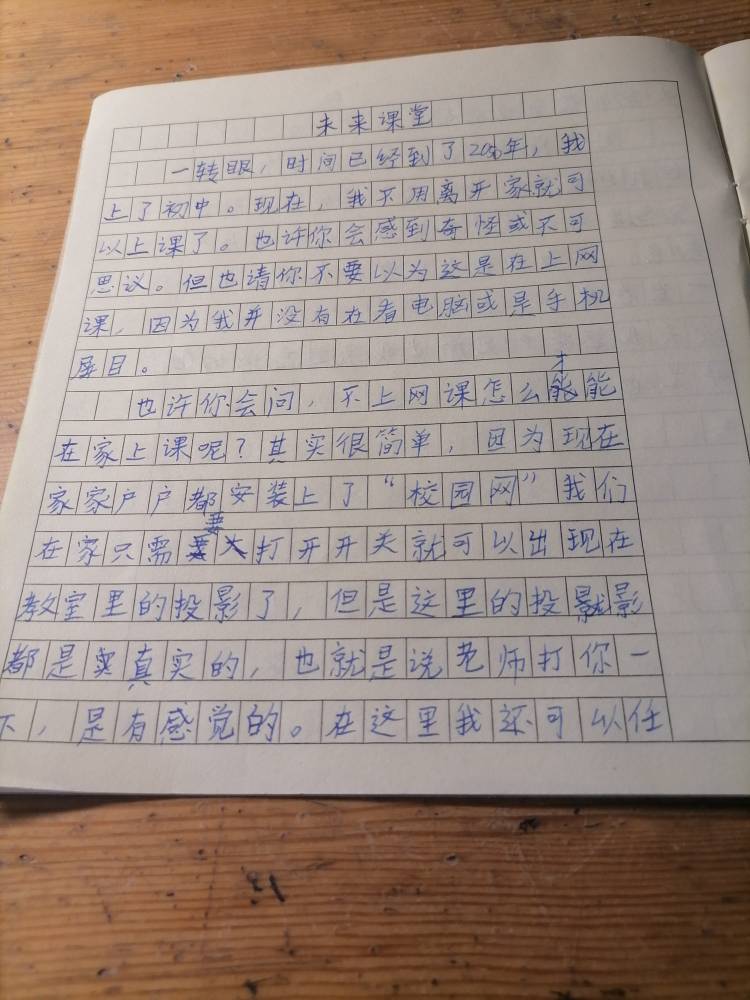 未来课堂
一转眼，时间已经到了年，我
上了初中。现在，我不用离开家就可
以上课了。也许你会感到奇怪或不可
思议。但也请你不要以为这是在上网
课，因为我并没有在看电脑或是手机
屏目。
也许你会问，不上网课怎么才能
在家上课呢？其实很简单，因为现在
家家户户都安装上了“校园网”我们
在家只需要打开开关就可以出现在
教室里的投影了，但是这里的投影
都是真实的，也就是说老师打你一
下，是有感觉的。在这里我还可以任